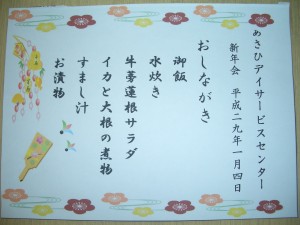 あさひデイサービスセンター
新年会　平成二九年一月四日
おしながき
御飯
水炊き
牛蒡蓮根サラダ
イカと大根の煮物
すまし汁
お漬物